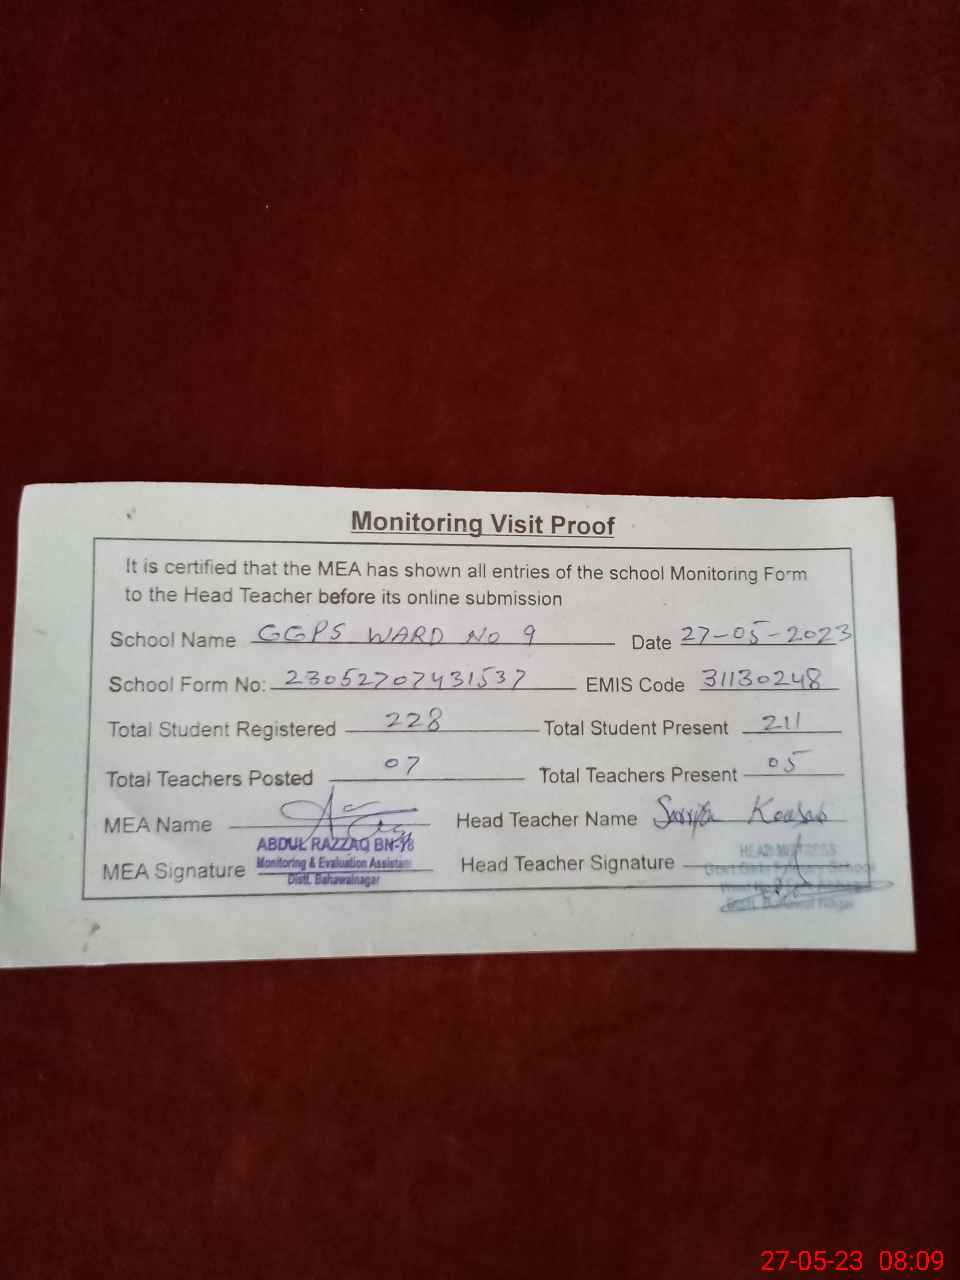 Monitoring Visit Proof
It is certified that the MEA has shown all entries of the school Monitoring Form
to the Head Teacher before its online submission
School Name GGPS WARD NO 9 Date 27-05-2023
School Form No: 23052707431537 EMIS Code 31130248
Total Student Registered 228 Total Student Present 211
Total Teachers Posted 07 Total Teachers Present 05
MEA Name Head Teacher Name Kousar
ABDUL RAZZAQ BN-18
MEA Signature Monitoring & Evaluation Assistant Head Teacher Signature
Distt. Bahawalnagar
HEAD MISTRESS
27-05-23 08:09